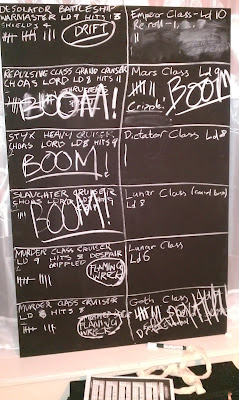 DESOLATOR BATTLESHIP
WARMASTER LD 9 HITS 12
SHIELDS 4
DRIFT
REPULSIVE CLASS GRAND CRUISER
CHOAS LORD LD8 HITS
BOOM!
STYX HEAVY CRUISER
CHOAS LORD LD8 HITS
BOOM!
SLAUGHTER CRUISER
CHOAS LORD LD8 HITS
BOOM!
MURDER CLASS CRUISER
LD 9 HITS 8 DESPAIR
CRIPPLED
FLAMING
WRECK
MURDER CLASS CRUISER
LD 8 HITS 8
FLAMING
WRECK
Emperor Class - Ld 10
Re-roll - 1
Mars Class Ld 9
BOOM
Cripple!
Dictator Class Ld 8
Lunar Class
Ld 8
Lunar Class
Ld 6
Goth Class